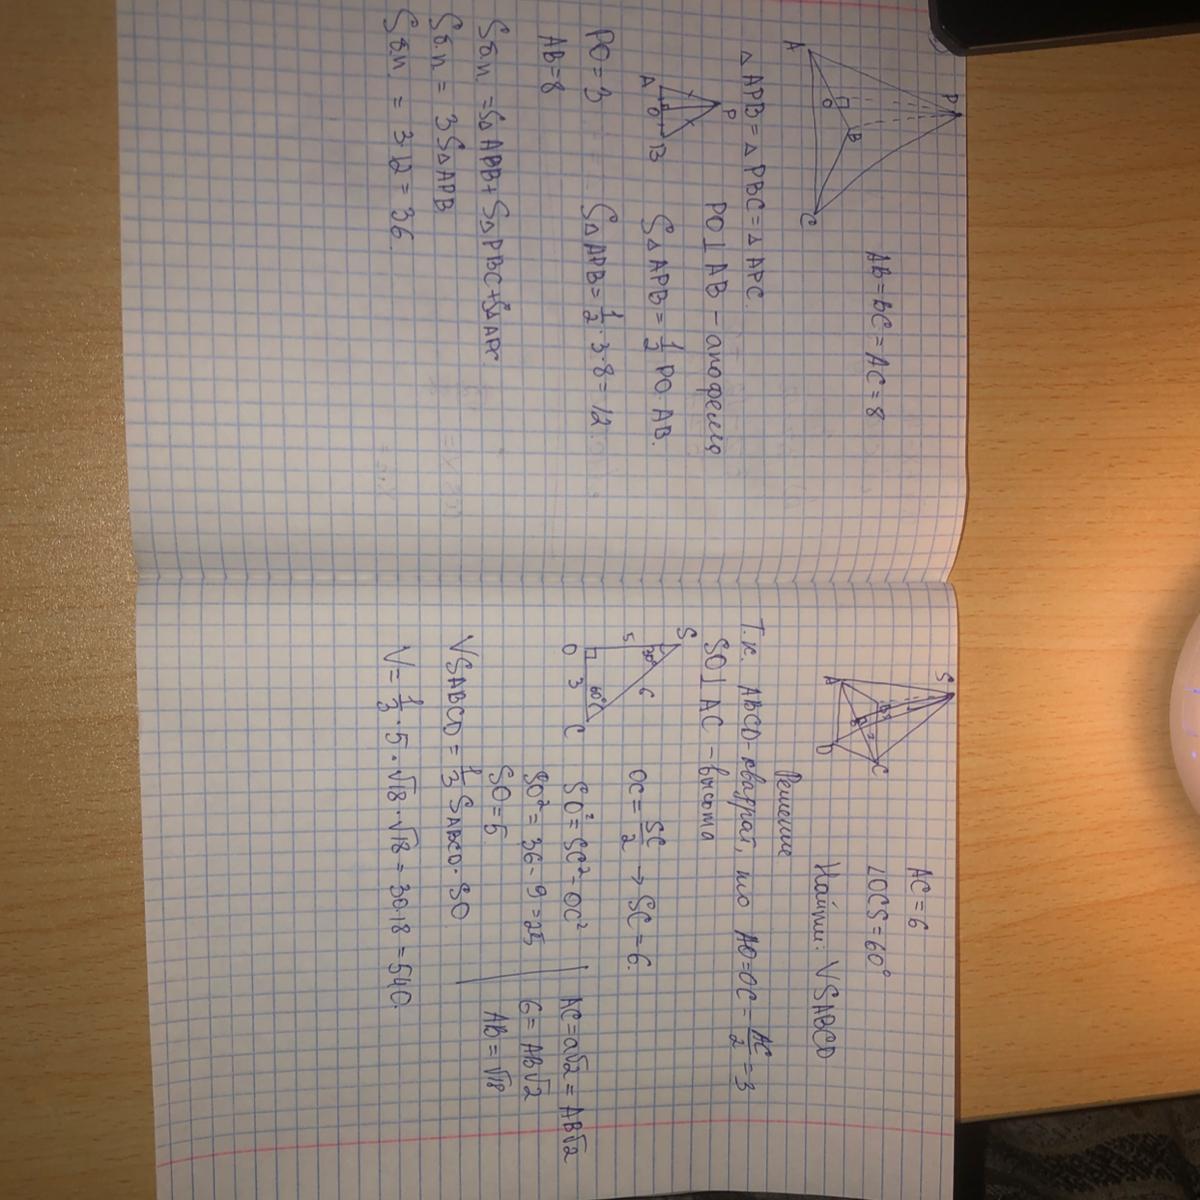 P
A
O
B
C
AB=BC=AC=8
△APB=△PBC=△APC.
PO⊥AB - апофема
P
A
O
B
S△APB=1/2 PO·AB.
PO=3
S△APB=1/2·3·8=12.
AB=8
Sбп=S△APB+S△PBC+S△APC.
Sбп=3S△APB
Sбп.=3·12=36.
S
A
B
O
D
C
AC=6
∠OCS=60°
Найти: VSABCD
Решение
Т.к. ABCD-квадрат, то AO=OC=AC/2=3
SO⊥AC - высота
S
30°
5
6
60°
O
3
C
OC=SC/2→SC=6.
SO²=SC²-OC²
SO²=36-9=25
SO=5.
AC=a√2=AB√2
6=AB√2
AB=√18
VSABCD=1/3 SABCD·SO.
V=1/3·5·√18·√18=30·18=540.